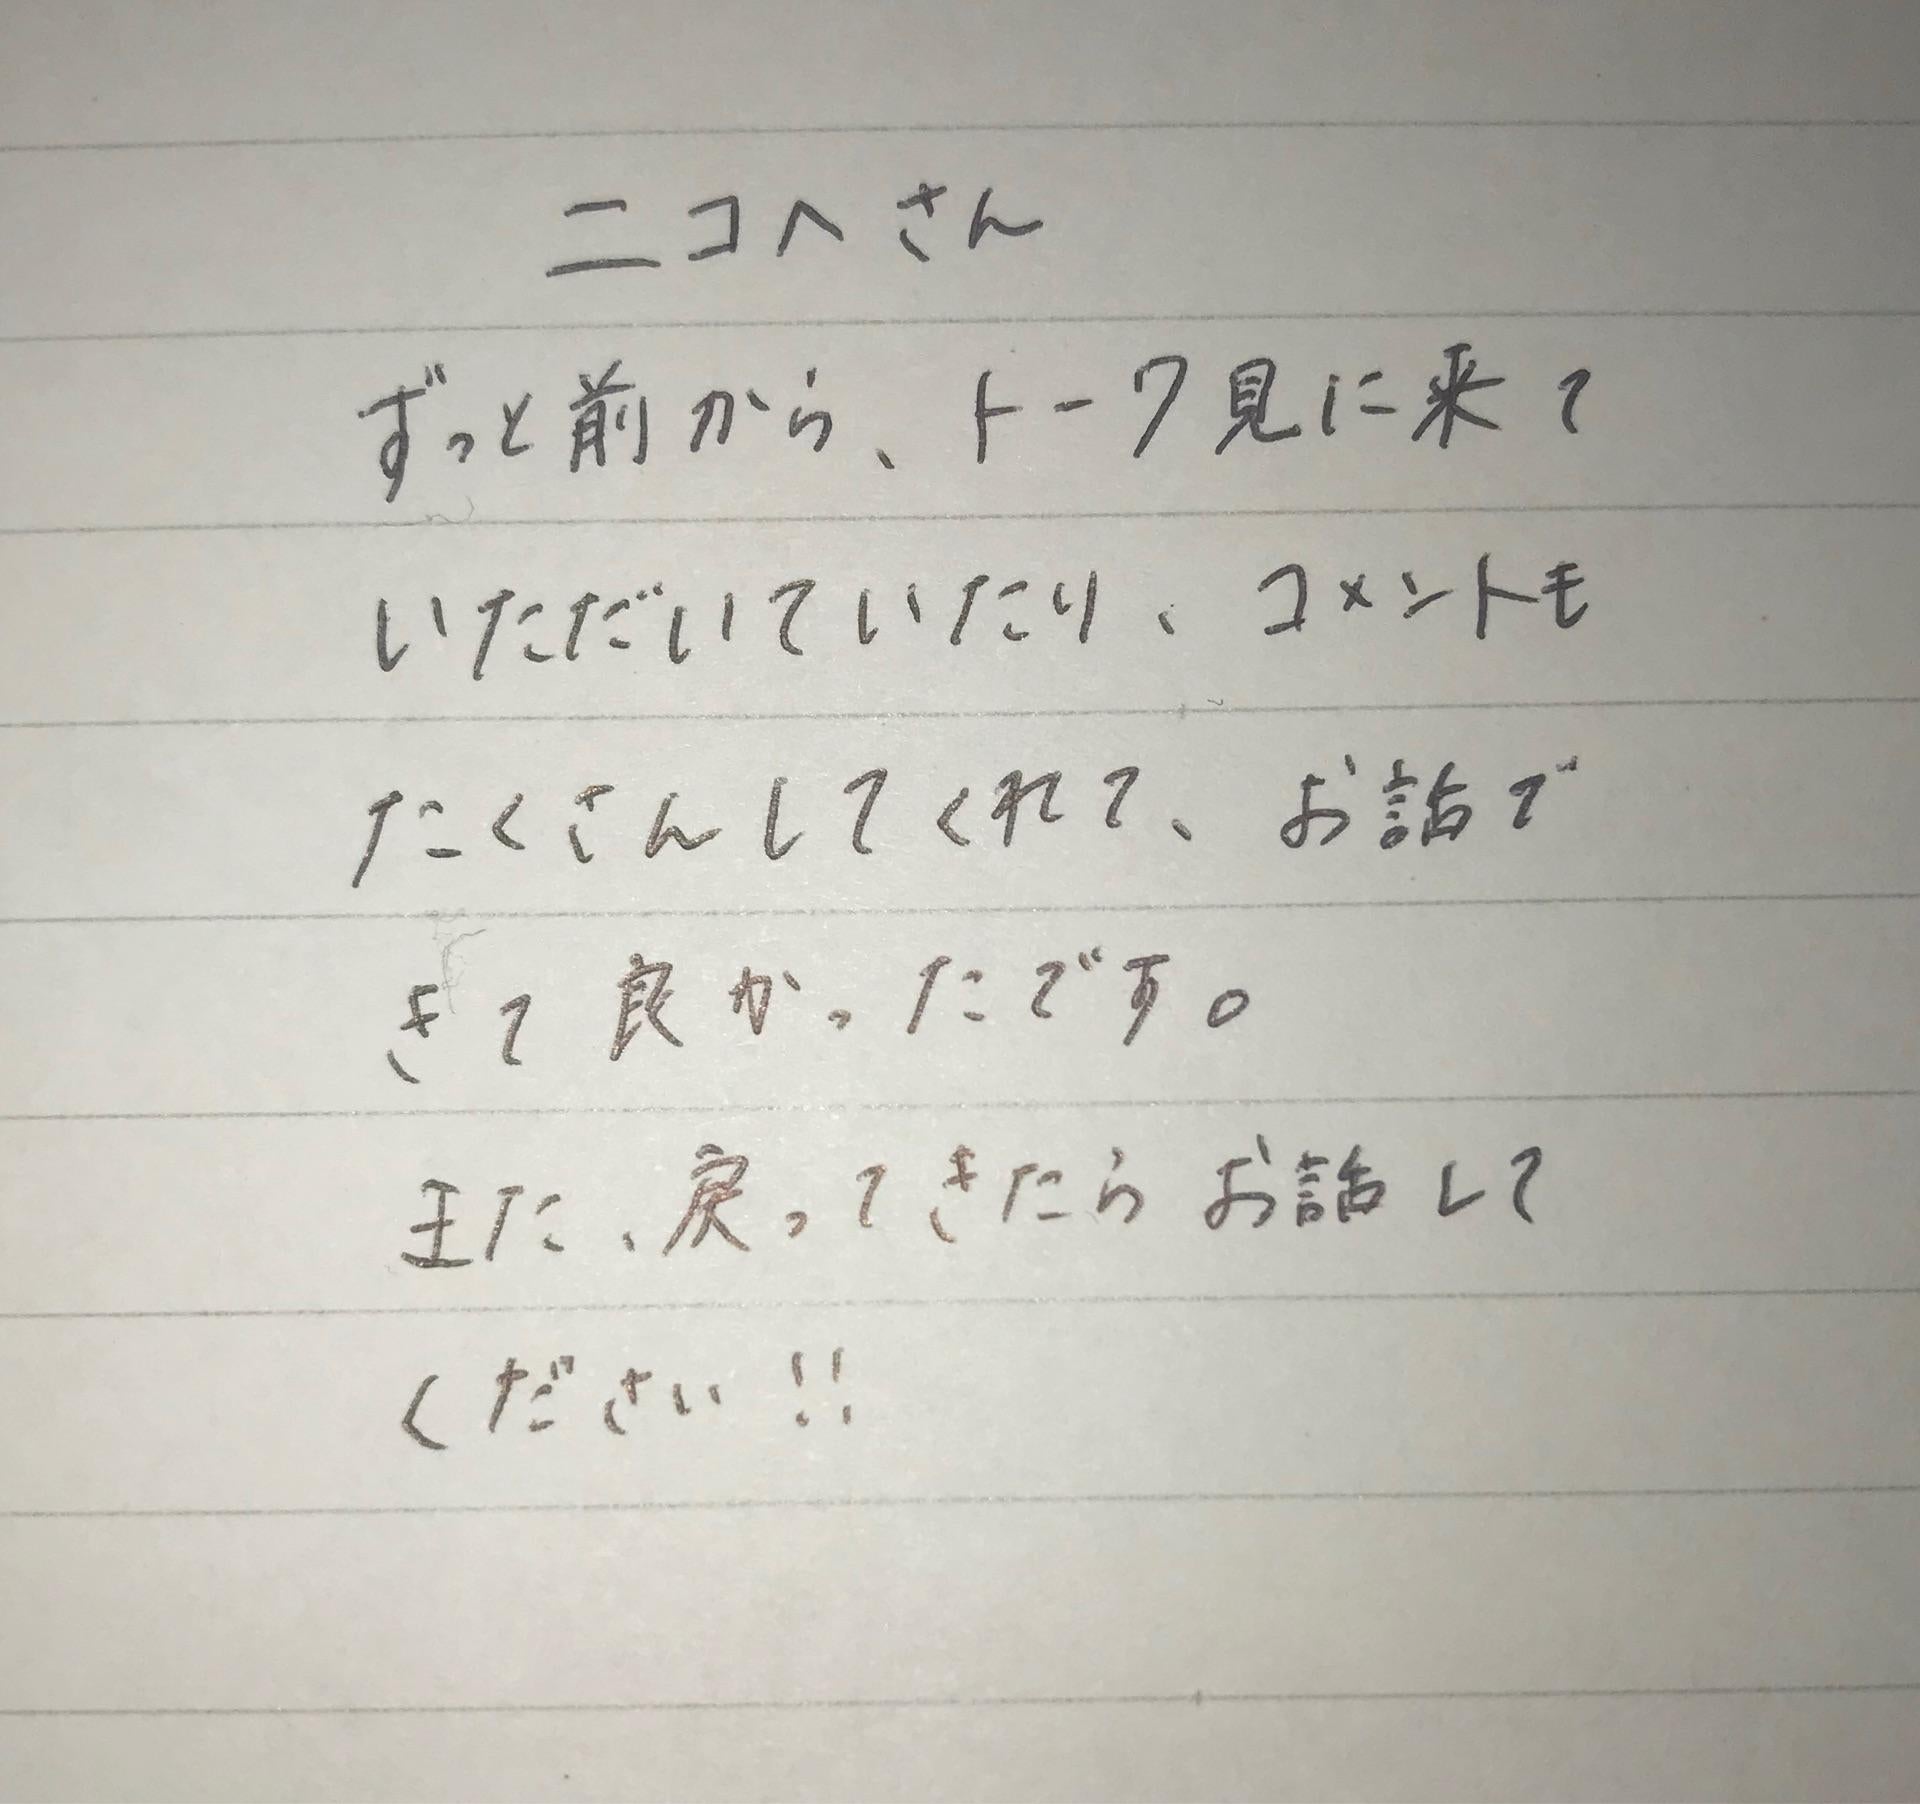 ニコへさん
ずっと前から、トーク見に来て
いただいていたり、コメントも
たくさんしてくれて、お話で
きて良かったです。
また、戻ってきたらお話して
ください!!